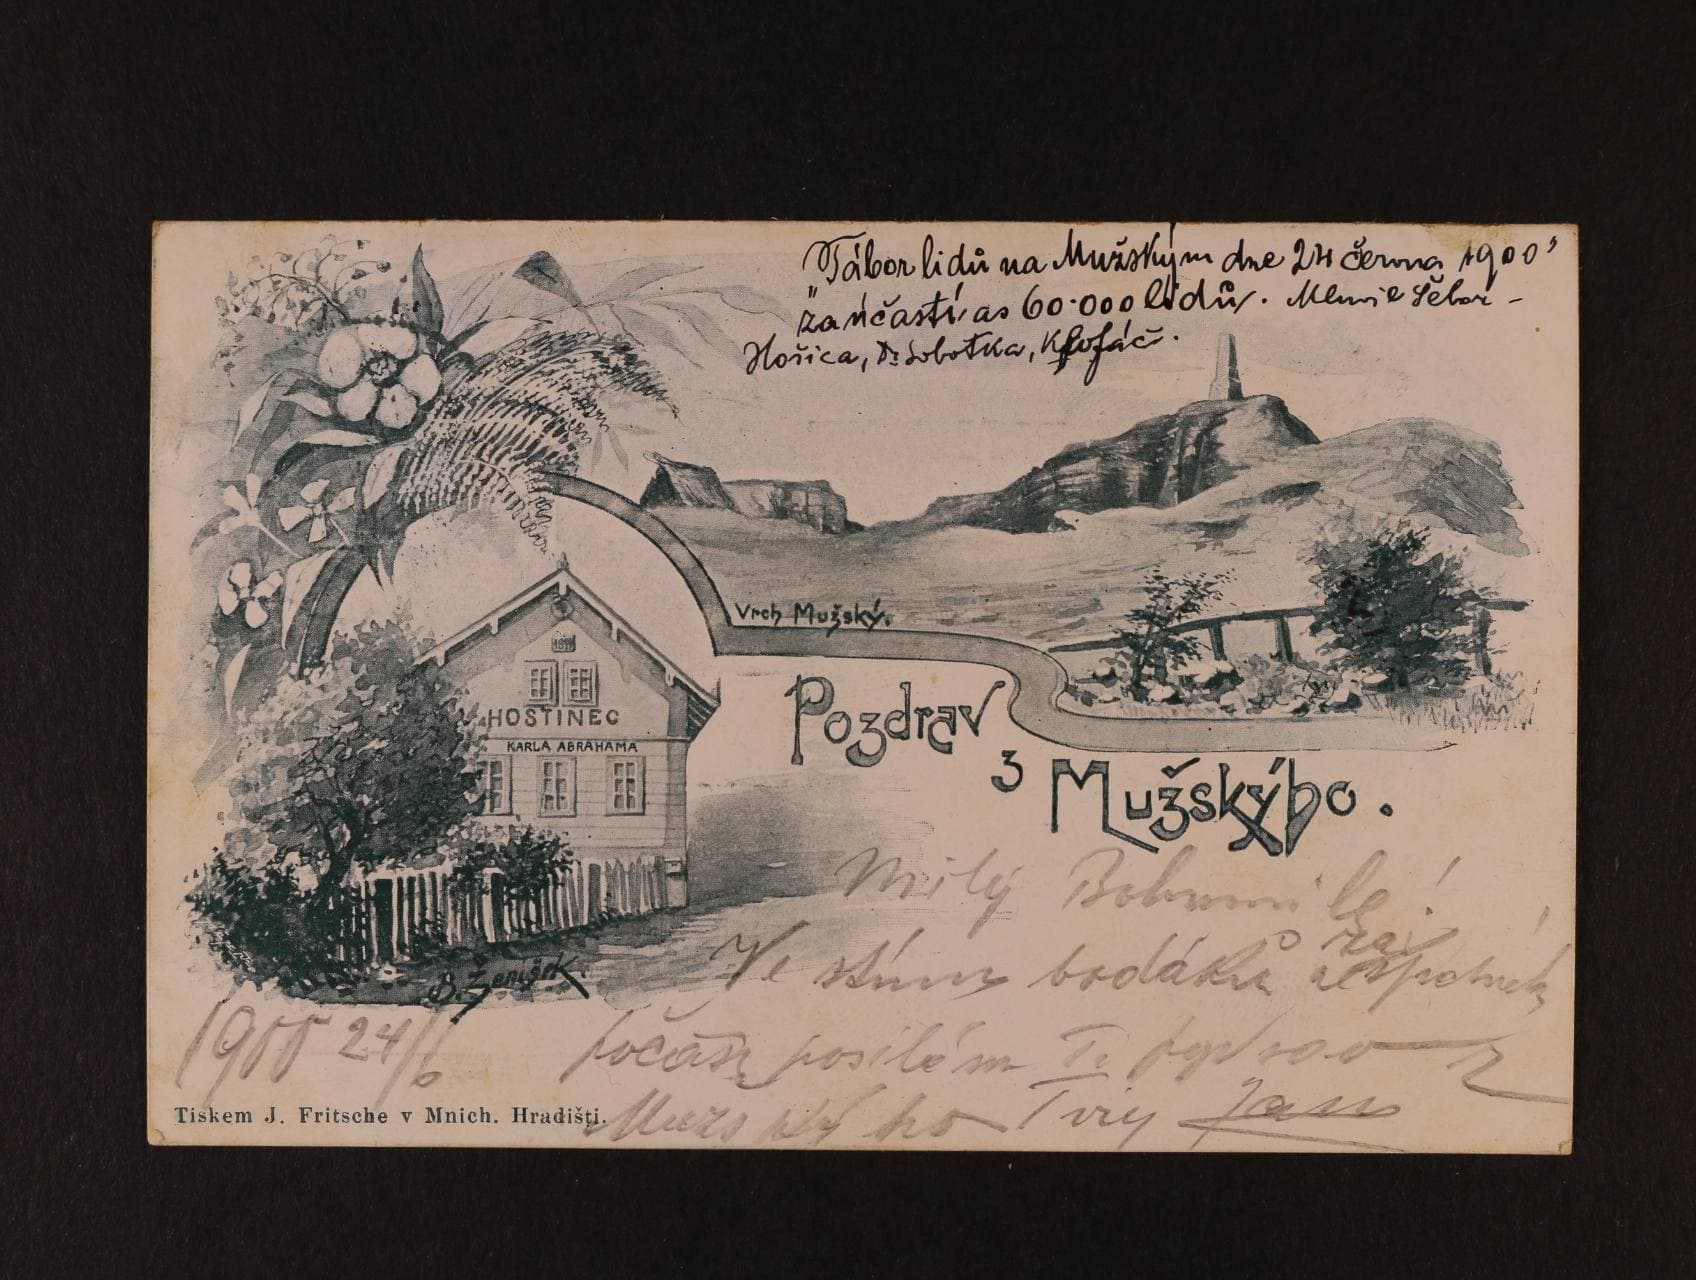 „Tábor lidů na Mužským dne 24 června 1900"
za účastí as 60.000 lidů. Mluvil Šebor-
Hořica, Dr Sobotka, Klofáč.
Vrch Mužský.
1877
HOSTINEC
KARLA ABRAHAMA
Pozdrav
z Mužskýho.
Milý Bohumile!
Ve stínu bodáků za
počasí posílám Ti pozdrav z
Mužskýho Tvůj Jan
B. Ženíšek.
1900 24/6
Tiskem J. Fritsche v Mnich. Hradišti.